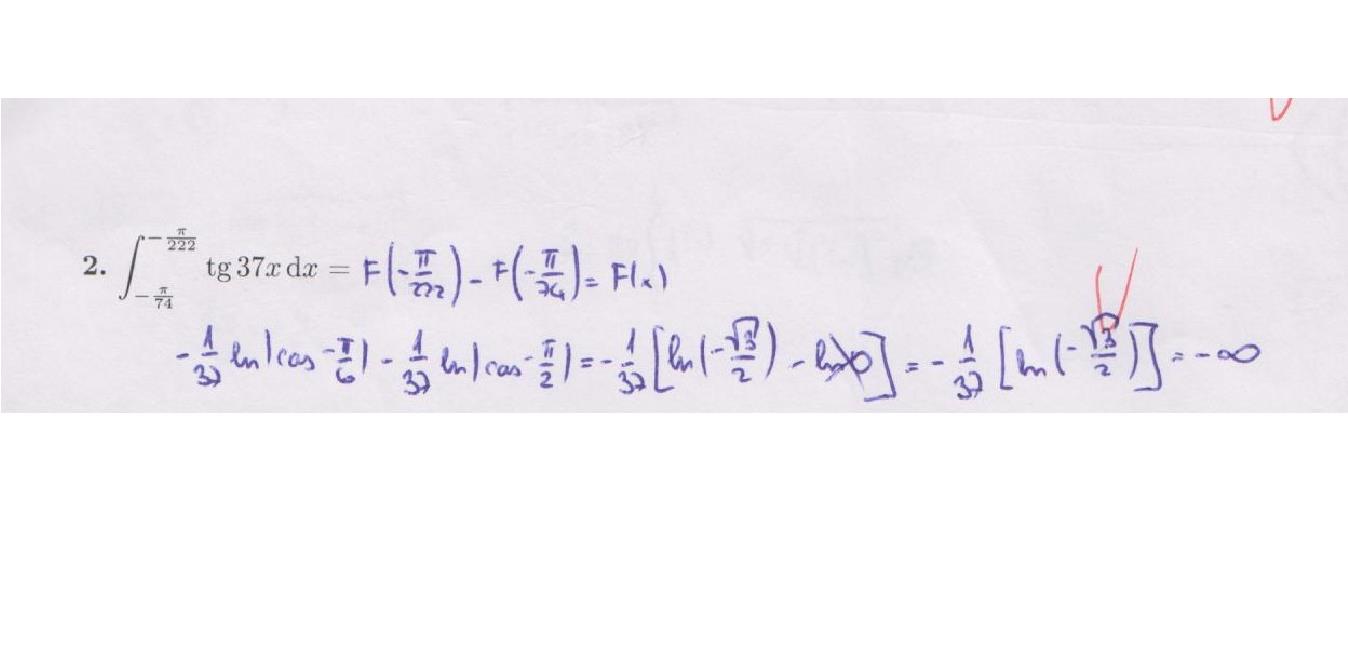 2. ∫_{-π/74}^{-π/222} tg 37x dx = F(-π/222) - F(-π/74) = F(x)
-1/37 ln|cos -π/6| - 1/37 ln|cos -π/2| = -1/37 [ln(-√3/2) - ln 0] = -1/37 [ln(-√3/2)] = -∞